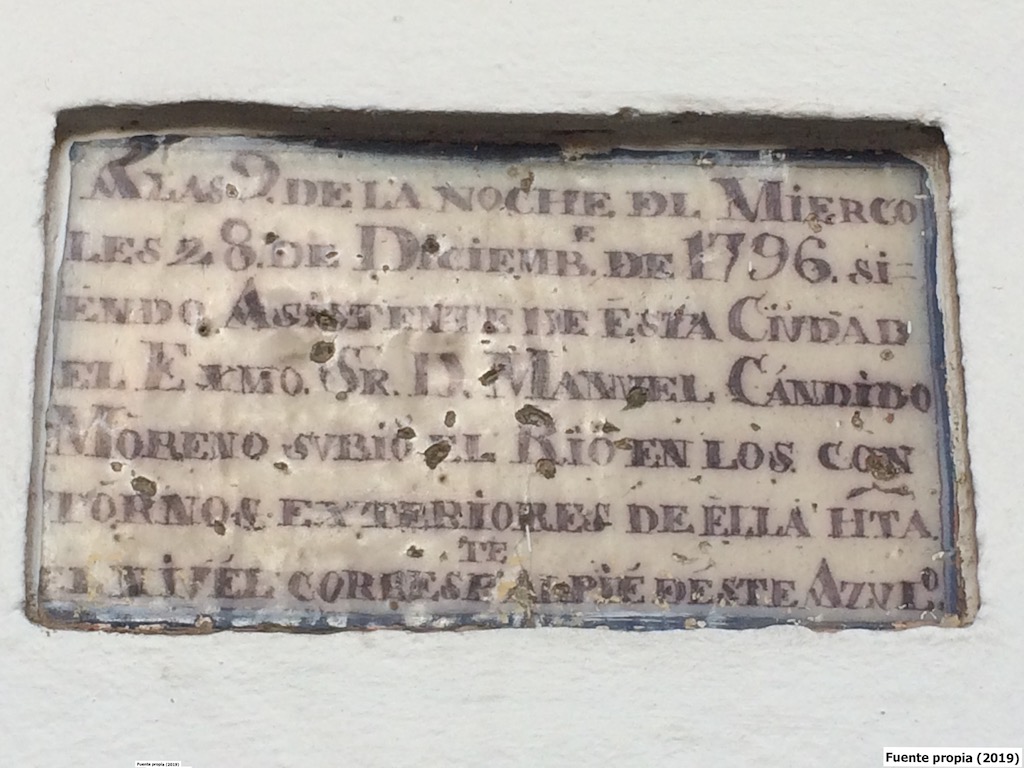 A LAS 9. DE LA NOCHE DL MIERCO
LES 28. DE DICIEMB.E DE 1796. SI=
ENDO ASISTENTE DE ESTA CIUDAD
EL EXMO. SR. D. MANUEL CÁNDIDO
MORENO SUBIÓ EL RIO EN LOS CON
TORNOS EXTERIORES DE ELLA HTA.
EL NIVEL CORRESP.TE AL PIÉ DE ESTE AZUL.O
Fuente propia (2019)
Fuente propia (2019)